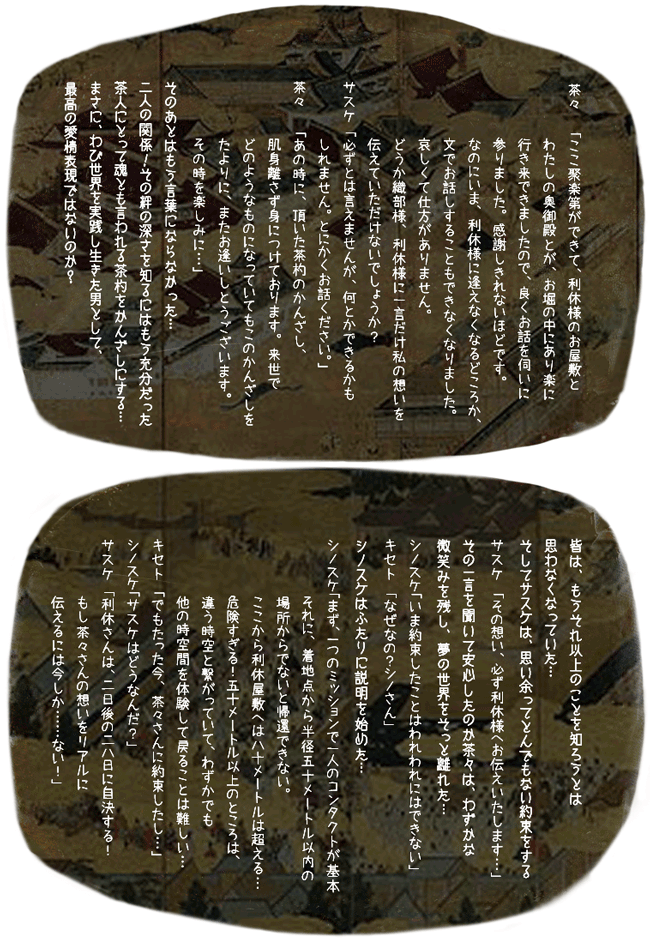 茶々　「ここ聚楽第ができて、利休様のお屋敷と
わたしの奥御殿とが、お堀の中にあり楽に
行き来できましたので、良くお話を伺いに
参りました。感謝しきれないほどです。
なのにいま、利休様に逢えなくなるどころか、
文でお話しすることもできなくなりました。
哀しくて仕方がありません。
どうか織部様、利休様に一言だけ私の想いを
伝えていただけないでしょうか？
サスケ「必ずとは言えませんが、何とかできるかも
しれません。とにかくお話ください。」
茶々　「あの時に、頂いた茶杓のかんざし、
肌身離さず身につけております。来世で
どのようなものになっていてもこのかんざしを
たよりに、またお逢いしとうございます。
その時を楽しみに…」
そのあとはもう言葉にならなかった…
二人の関係！その絆の深さを知るにはもう充分だった
茶人にとって魂とも言われる茶杓をかんざしにする…
まさに、わび世界を実践し生きた男として、
最高の愛情表現ではないのか？
皆は、もうそれ以上のことを知ろうとは
思わなくなっていた…
そしてサスケは、思い余ってとんでもない約束をする
サスケ　「その想い、必ず利休様へお伝えいたします…」
その一言を聞いて安心したのか茶々は、わずかな
微笑みを残し、夢の世界をそっと離れた…
シノスケ「いま約束したことはわれわれにはできない」
キセト　「なぜなの？シノさん」
シノスケはふたりに説明を始めた…
シノスケ「まず、一つのミッションで一人のコンタクトが基本
それに、着地点から半径五十メートル以内の
場所からでないと帰還できない。
ここから利休屋敷へは八十メートルは超える…
危険すぎる！五十メートル以上のところは、
違う時空と繋がっていて、わずかでも
他の時空間を体験して戻ることは難しい…
キセト　「でもたった今、茶々さんに約束したし…」
シノスケ「サスケはどうなんだ？」
サスケ　「利休さんは、二日後の二八日に自決する！
もし茶々さんの想いをリアルに
伝えるには今しか……ない！」